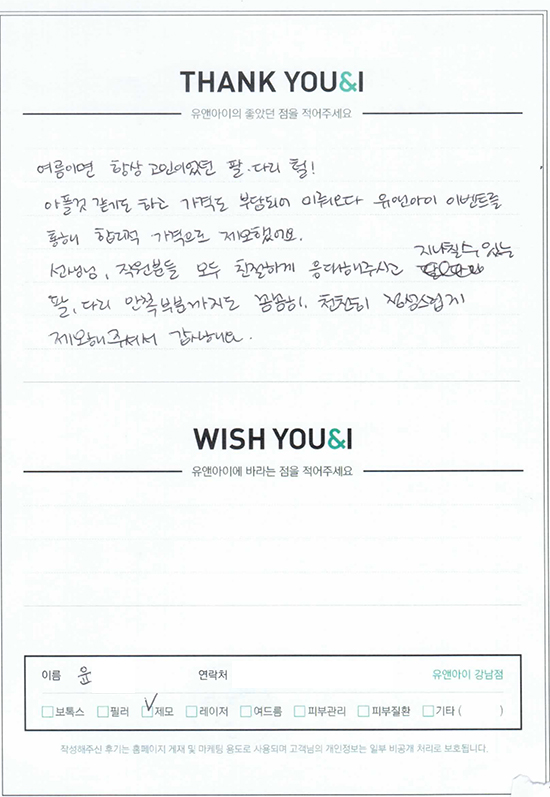 THANK YOU&I
유앤아이의 좋았던 점을 적어주세요
여름이면 항상 고민이었던 팔·다리 털!
아플것 같기도 하고 가격도 부담되어 미뤄오다 유앤아이 이벤트를
통해 합리적 가격으로 제모했어요.
선생님, 직원분들 모두 친절하게 응대해주시고 지나칠수 있는
팔, 다리 안쪽부분까지도 꼼꼼히, 천천히 정성스럽게
제모해주셔서 감사해요.
WISH YOU&I
유앤아이에 바라는 점을 적어주세요
이름 윤 연락처 유앤아이 강남점
보톡스 필러 제모 레이저 여드름 피부관리 피부질환 기타 ( )
작성해주신 후기는 홈페이지 게재 및 마케팅 용도로 사용되며 고객님의 개인정보는 일부 비공개 처리로 보호됩니다.